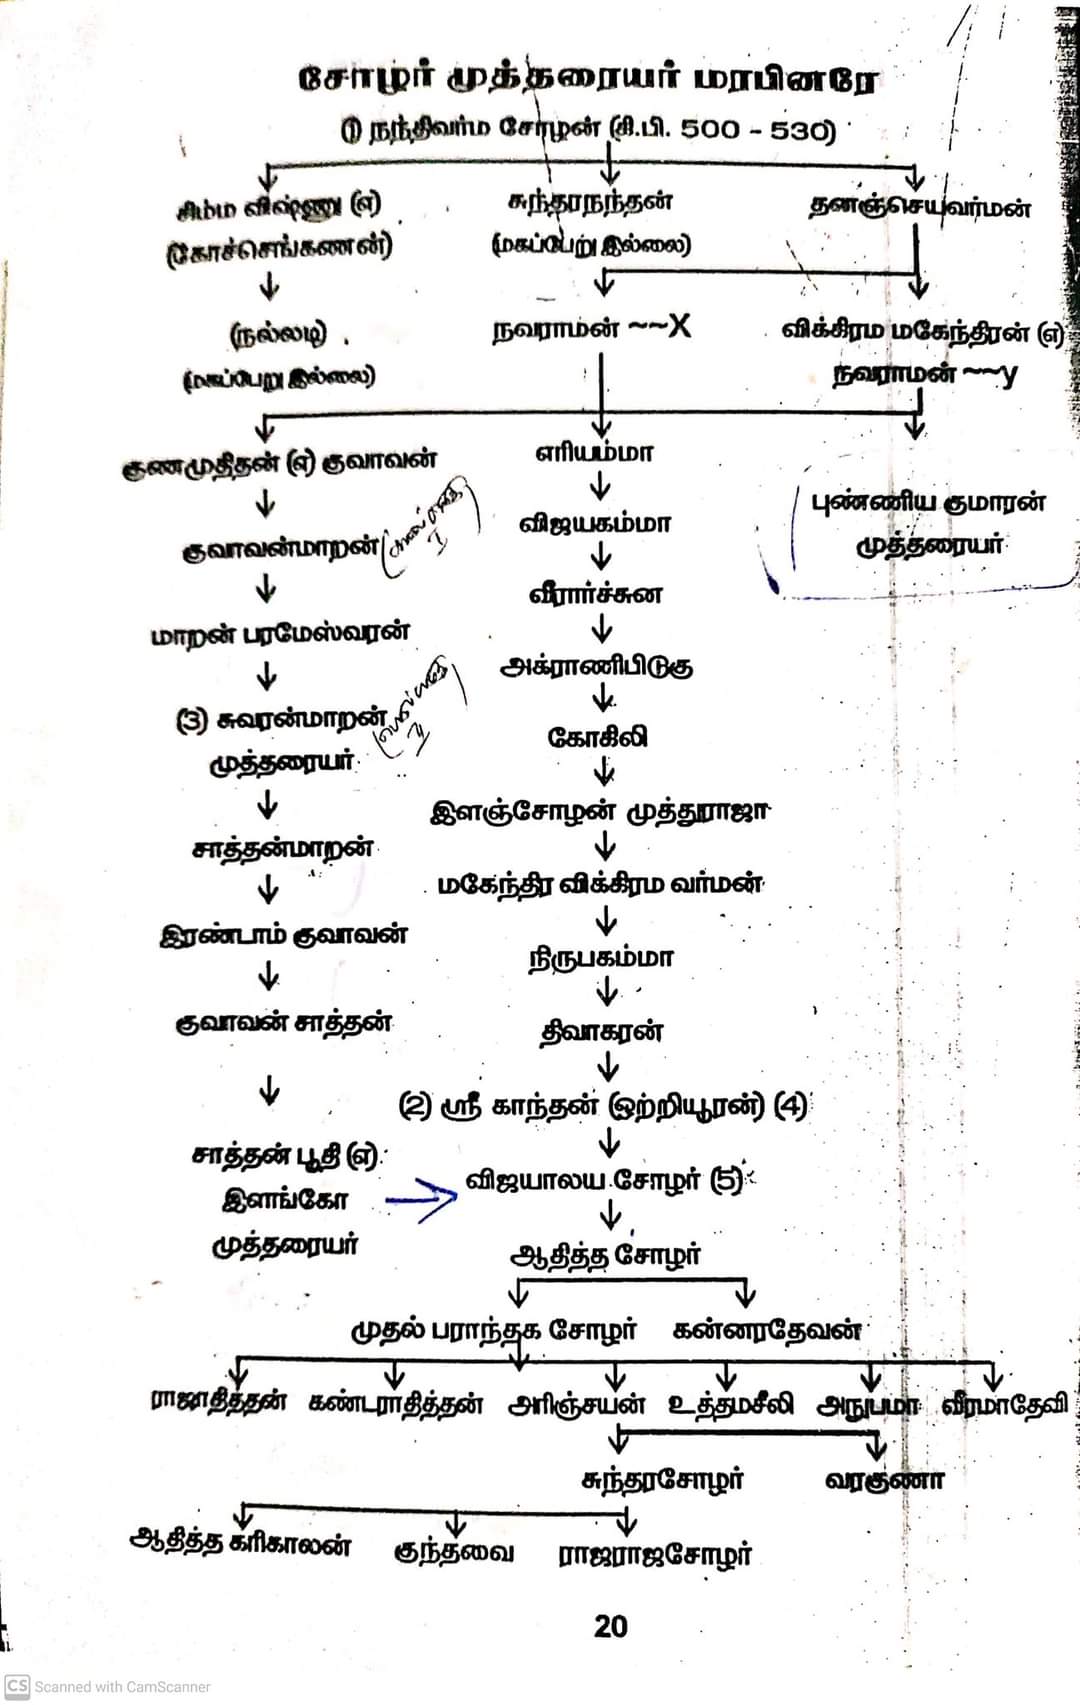 சோழர் முத்தரையர் மரபினரே
(1) நந்திவர்ம சோழன் (கி.பி. 500 - 530)
சிம்ம விஷ்ணு (எ)
(கோச்செங்கணன்)
சுந்தரநந்தன்
(மகப்பேறு இல்லை)
தனஞ்செயவர்மன்
(நல்லடி)
(மகப்பேறு இல்லை)
நவராமன் ~~X
விக்கிரம மகேந்திரன் (எ)
நவராமன் ~~y
குணமுதிதன் (எ) குவாவன்
எரியம்மா
புண்ணிய குமாரன்
முத்தரையர்
விஜயகம்மா
குவாவன்மாறன்
I
வீரார்ச்சுன
மாறன் பரமேஸ்வரன்
அக்ராணிபிடுகு
(3) சுவரன்மாறன்
முத்தரையர்
II
கோகிலி
இளஞ்சோழன் முத்துராஜா
சாத்தன்மாறன்
மகேந்திர விக்கிரம வர்மன்
இரண்டாம் குவாவன்
நிருபகம்மா
குவாவன் சாத்தன்
திவாகரன்
(2) ஸ்ரீ காந்தன் (ஒற்றியூரன்) (4)
சாத்தன் பூதி (எ)
இளங்கோ
முத்தரையர்
விஜயாலய சோழர் (5)
ஆதித்த சோழர்
முதல் பராந்தக சோழர் கன்னரதேவன்
ராஜாதித்தன் கண்டராதித்தன் அரிஞ்சயன் உத்தமசீலி அநுபமா வீரமாதேவி
சுந்தரசோழர் வரகுணா
ஆதித்த கரிகாலன் குந்தவை ராஜராஜசோழர்
20
CS Scanned with CamScanner